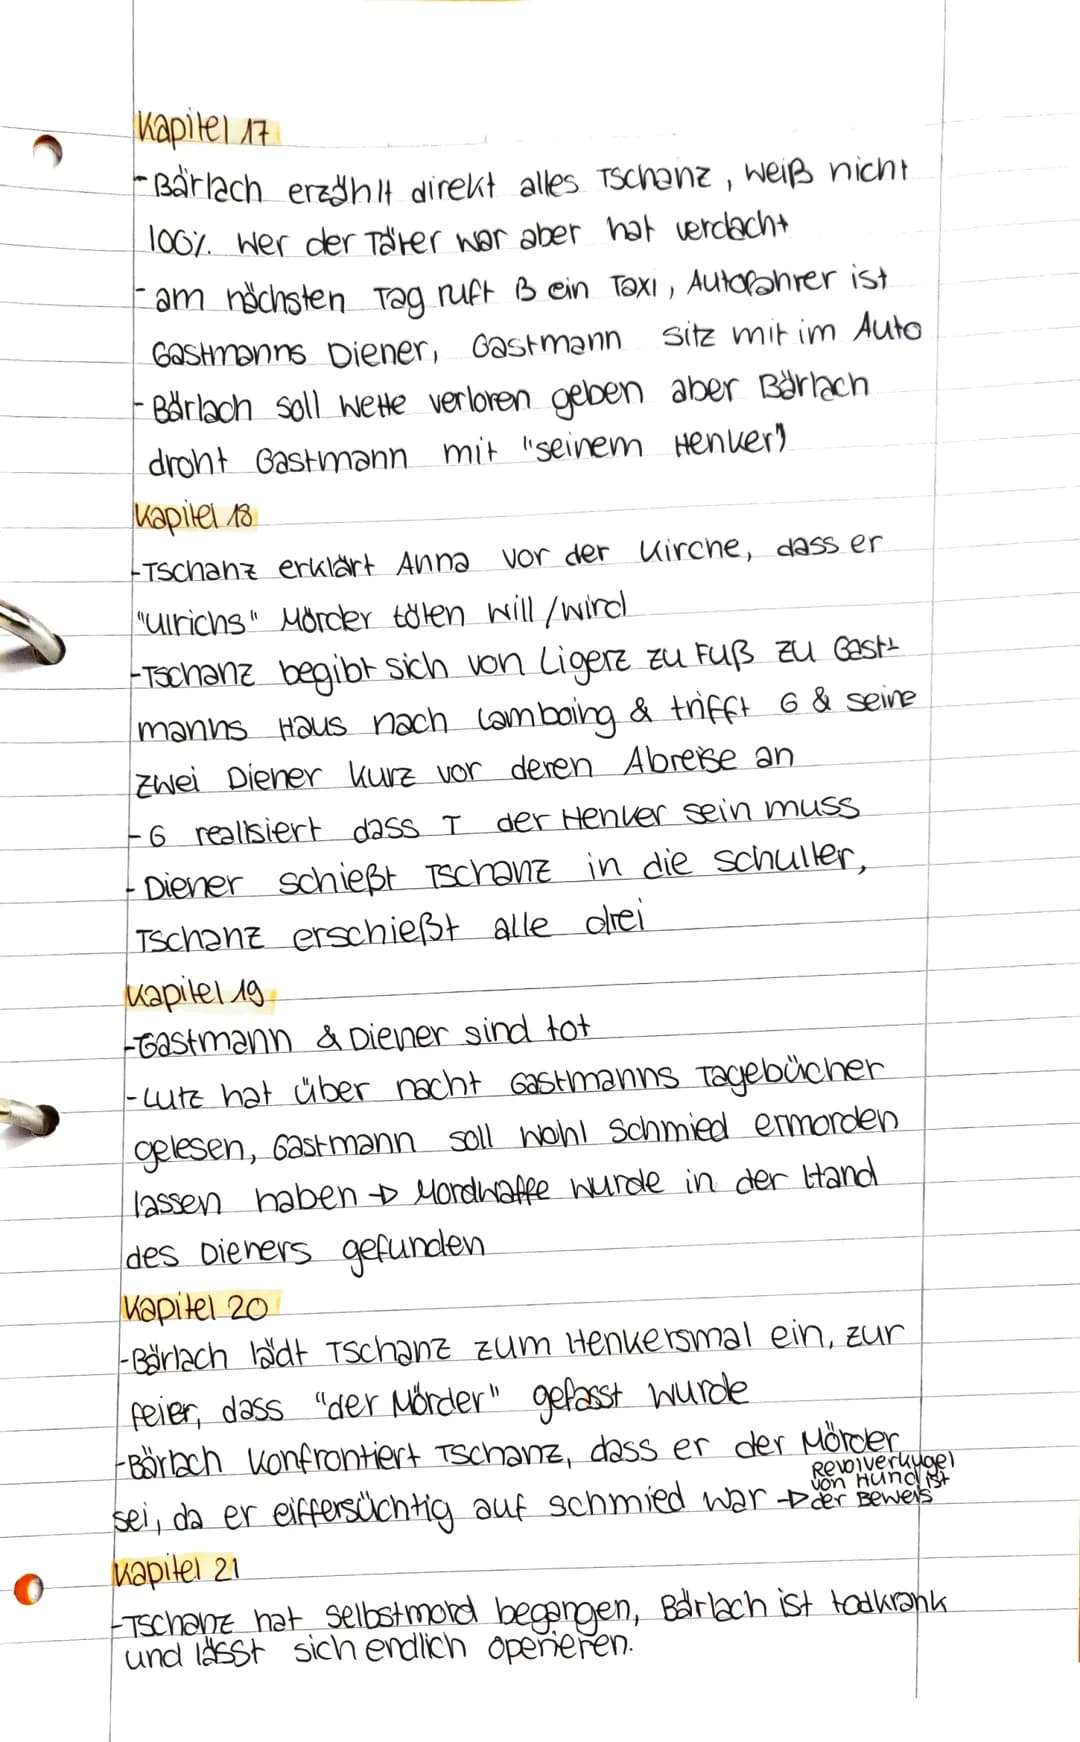 Kapitel 17
- Bärlach erzählt direkt alles Tschanz, weiß nicht
100%. wer der Täter war aber hat verdacht
- am nächsten Tag ruft B ein Taxi, Autofahrer ist
Gastmanns Diener, Gastmann sitz mit im Auto
- Bärlach soll Wette verloren geben aber Bärlach
droht Gastmann mit "seinem Henker"
Kapitel 18
- Tschanz erklärt Anna vor der Kirche, dass er
"Ulrichs" Mörder töten will/wird
- Tschanz begibt sich von Ligerz zu Fuß zu Gast-
manns Haus nach Lamboing & trifft G & seine
zwei Diener kurz vor deren Abreise an
- G realisiert dass T der Henker sein muss
- Diener schießt Tschanz in die schulter,
Tschanz erschießt alle drei
Kapitel 19
- Gastmann & Diener sind tot
- Lutz hat über nacht Gastmanns Tagebücher
gelesen, Gastmann soll wohl Schmied ermorden
lassen haben → Mordwaffe wurde in der Hand
des Dieners gefunden
Kapitel 20
- Bärlach lädt Tschanz zum Henkersmal ein, zur
feier, dass "der Mörder" gefasst wurde
- Bärlach konfrontiert Tschanz, dass er der Mörder
sei, da er eiffersüchtig auf schmied war → Revolverkugel
von Hund ist
der Beweis
Kapitel 21
- Tschanz hat selbstmord begangen, Bärlach ist todkrank
und lässt sich endlich operieren.